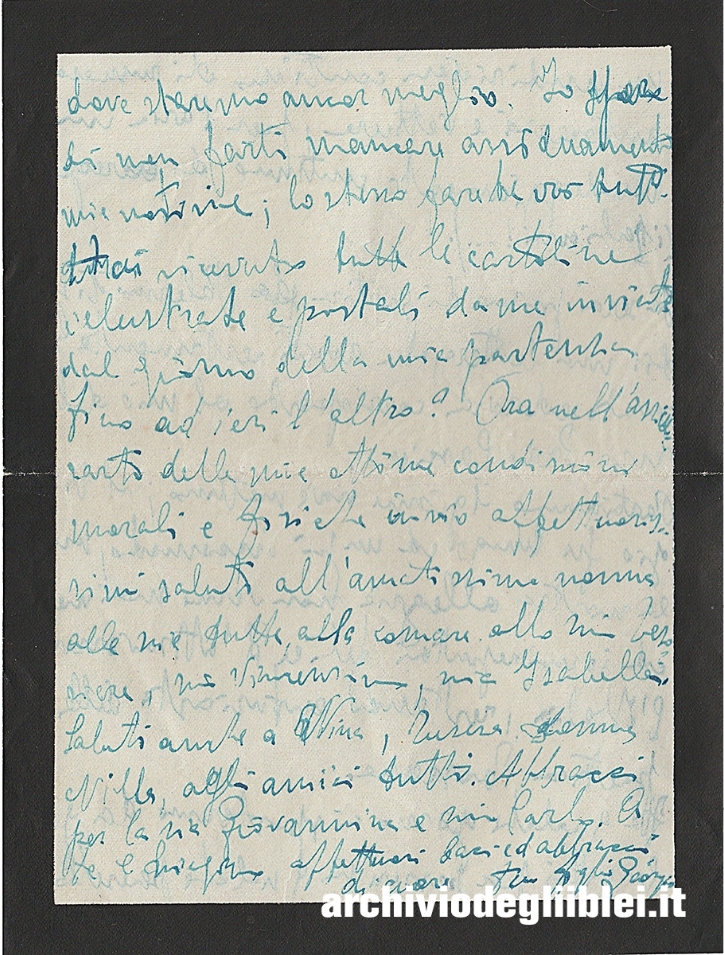 dove staremo ancor meglio. Io spero
di non farti mancare assiduamente
mie notizie; lo stesso farete voi tutti.
Hai ricevuto tutte le cartoline
illustrate e postali da me inviate
dal giorno della mia partenza
fino ad ieri l'altro? Ora nell'assicu-
rarti delle mie ottime condizioni
morali e fisiche invio affettuosis-
simi saluti all'amatissima nonna
alle zie tutte, alla comare, allo zio
zia Vincenzina, zia Isabella.
Saluti anche a Nina,
agli amici tutti. Abbracci
per la zia Giovannina e zio Carlo. A
te e affettuosi baci ed abbracci
di cuore tuo figlio
archiviodegliiblei.it